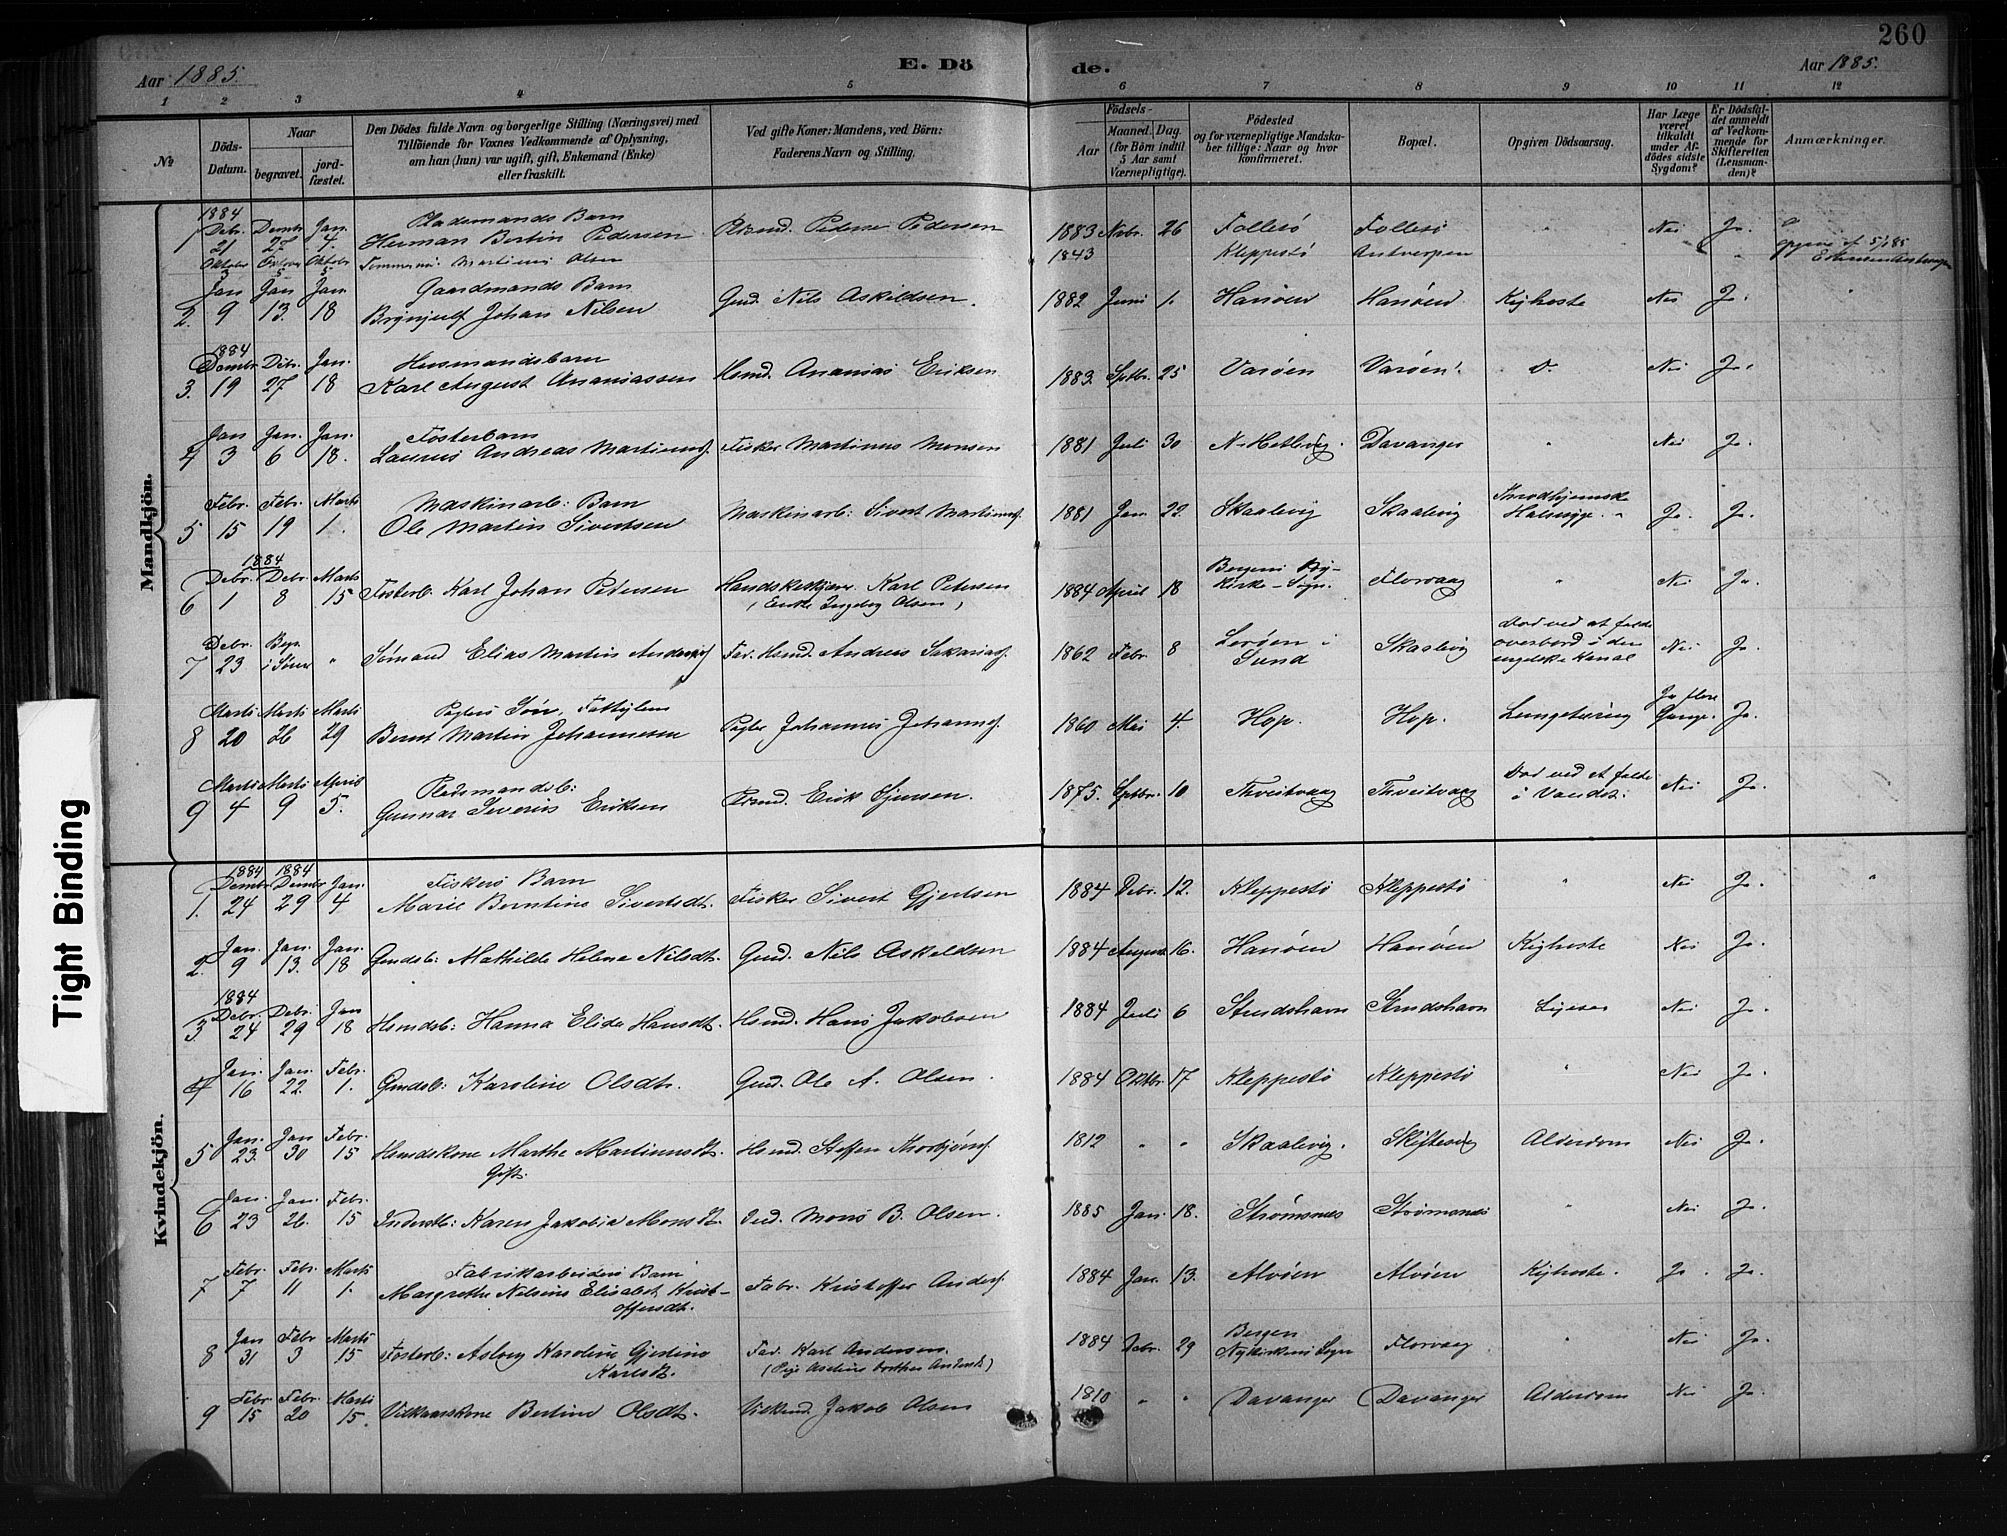 260
Aar 1885. E. Dö de. Aar 1885.
1 2 3 4 5 6 7 8 9 10 11 12
No
Döds-Datum.
Naar
begravet. jord-fæstet.
Den Dödes fulde Navn og borgerlige Stilling (Næringsvei) med
Tilföiende for Voxnes Vedkommende af Oplysning,
om han (hun) var ugift, gift, Enkemand (Enke)
eller fraskilt.
Ved gifte Koner: Mandens, ved Börn:
Faderens Navn og Stilling.
Födsels-
Aar
Maaned. Dag.
(for Börn indtil
5 Aar samt
Værnepligtige).
Födested
og for værnepligtige Mandska-
ber tillige: Naar og hvor
konfirmeret.
Bopæl.
Opgiven Dödsaarsag.
Har Læge
været
tilkaldt
under Af-
dödes sidste
Sygdom?
Er Dödsfal-
det anmeldt
af Vedkom-
mende for
Skifteretten
(Lensman-
den)?
Anmærkninger.
Mandkjön.
1884
1 Debr. 21 Dembr 27 Jan. 4. Pladsmands Barn
Herman Bertin Pedersen Pedersen 1883 Nvbr. 26 Follesö Follesö " Nei Ja.
Oktober 3 Oktober 5 Oktobr 5 Martinus Olsen 1843 Kleppestö Antverpen "
2. Jan 9 Jan 13. Jan. 18 Gaardmands Barn
Brynjulf Johan Nilsen Gmd. Nils Askildsen. 1882 Juni 1. Hanöen Hanöen Kighoste Nei Ja. "
1884
3. Dembr 19 Debr. 27 Jan. 18 Husmandsbarn
Karl August Ananiassen Hsmd. Ananias Eriksen 1883. Sptbr. 25 Varöen Varöen. Do. Nei Ja.
4 Jan 3 Jan. 6 Jan. 18. Fosterbarn
Laurits Andreas Martinus. Fisker Martinus Monsen 1881 Juli 30 N. Hetlevig. Davanger " Nei Ja.
5 Febr. 15 Febr. 19 Marts 1. Maskinarb: Barn
Ole Martin Sivertsen Maskinarb: Sivert Martinus. 1881 Jan. 22. Skaalevig Skaalevig Halssyge. Ja. Ja.
1884
6 Debr. 1 Debr. 8 Marts 15 Fosterb. Karl Johan Petersen Karl Petersen
(Enke Ingeborg Olsen) 1884 April 18 Bergens
Kirke-Sogn. Florvaag " Nei Ja.
7 Debr. 23 " Sömand Elias Martin Far. Hsmd. Andreas 1862 Febr. 8 Leröen i
Sund Skaalevig Död ved at falde
overbord i den
engelske Kanal Nei Ja.
8 Marts 20 Marts 26 Marts 29 Sön, Fattiglem
Bernt Martin Johannesen Johannes Johanns. 1860 Mai 4. Hop. Hop. Lungetæring Ja flere
Gange. Ja.
9 Marts 4 Marts 9 April 5. Pladsmandsb:
Gunnar Severin Eriksen Erik 1875. Sptbr. 10 Tveitvaag Tveitvaag Död ved at falde
i Vandet. Nei Ja.
Kvindekjön.
1. 1884 Dembr 24 1884 Dembr 29 Jan. 4 Fiskers Barn
Marie Berntine Sivertsdt. Fisker Sivert Gjertsen 1884 Debr. 12. Kleppestö Kleppestö " Nei Ja. "
2. Jan. 9 Jan. 13. Jan. 18 Gmdsb: Mathilde Helene Nilsdt. Gmd. Nils Askeldsen 1884 August 16. Hanöen Hanöen Kighoste Nei Ja.
1884
3 Debr. 24 Debr. 29 Jan 18 Hsmdsb: Hanna Elida Hansdt. Hsmd. Hans Jakobsen 1884 Juli 6 Strudshavn Strudshavn Nei Ja.
4 Jan. 16 Jan. 22. Febr. 1. Gmdsb: Karoline Olsdt. Gmd. Ole A. Olsen. 1884 Oktbr. 17 Kleppestö Kleppestö " Nei Ja.
5 Jan. 23. Jan 30 Febr. 15 Hsmdskone Marthe Martinusdt.
Gift. Hsmd. Steffen Thorbjörns. 1812 " " Skaalevig. Skiftesvig Alderdom Nei Ja.
6 Jan. 23 Jan. 26. Febr. 15 Inderstb: Karen Jakobia Monsdt. Ind. Mons B. Olsen. 1885 Jan. 18. Strömsnes Strömsnes " Nei Ja.
7 Febr. 7 Febr. 11 Marts 1. Fabrikarbeiders Barn
Margrethe Nilsine Elisabet Krist-
offersdt. Fabr. Kristoffer Anders. 1884 Jan. 13. Alvöen Alvöen Kighoste. Ja. Ja.
8 Jan 31 Febr 3 Marts 15 Fosterb: Aslaug Karoline Gjertine
Karlsdt. Far. Karl Andersen. 1884 Debr. 29 Bergen
Nykirkens Sogn Florvaag " Nei Ja.
9 Febr. 15 Febr. 20 Marts 15. Vilkaarskone Bertine Olsdt. Vilkmd. Jakob Olsen 1810 " " Davanger Davanger Alderdom Nei Ja.
Tight Binding